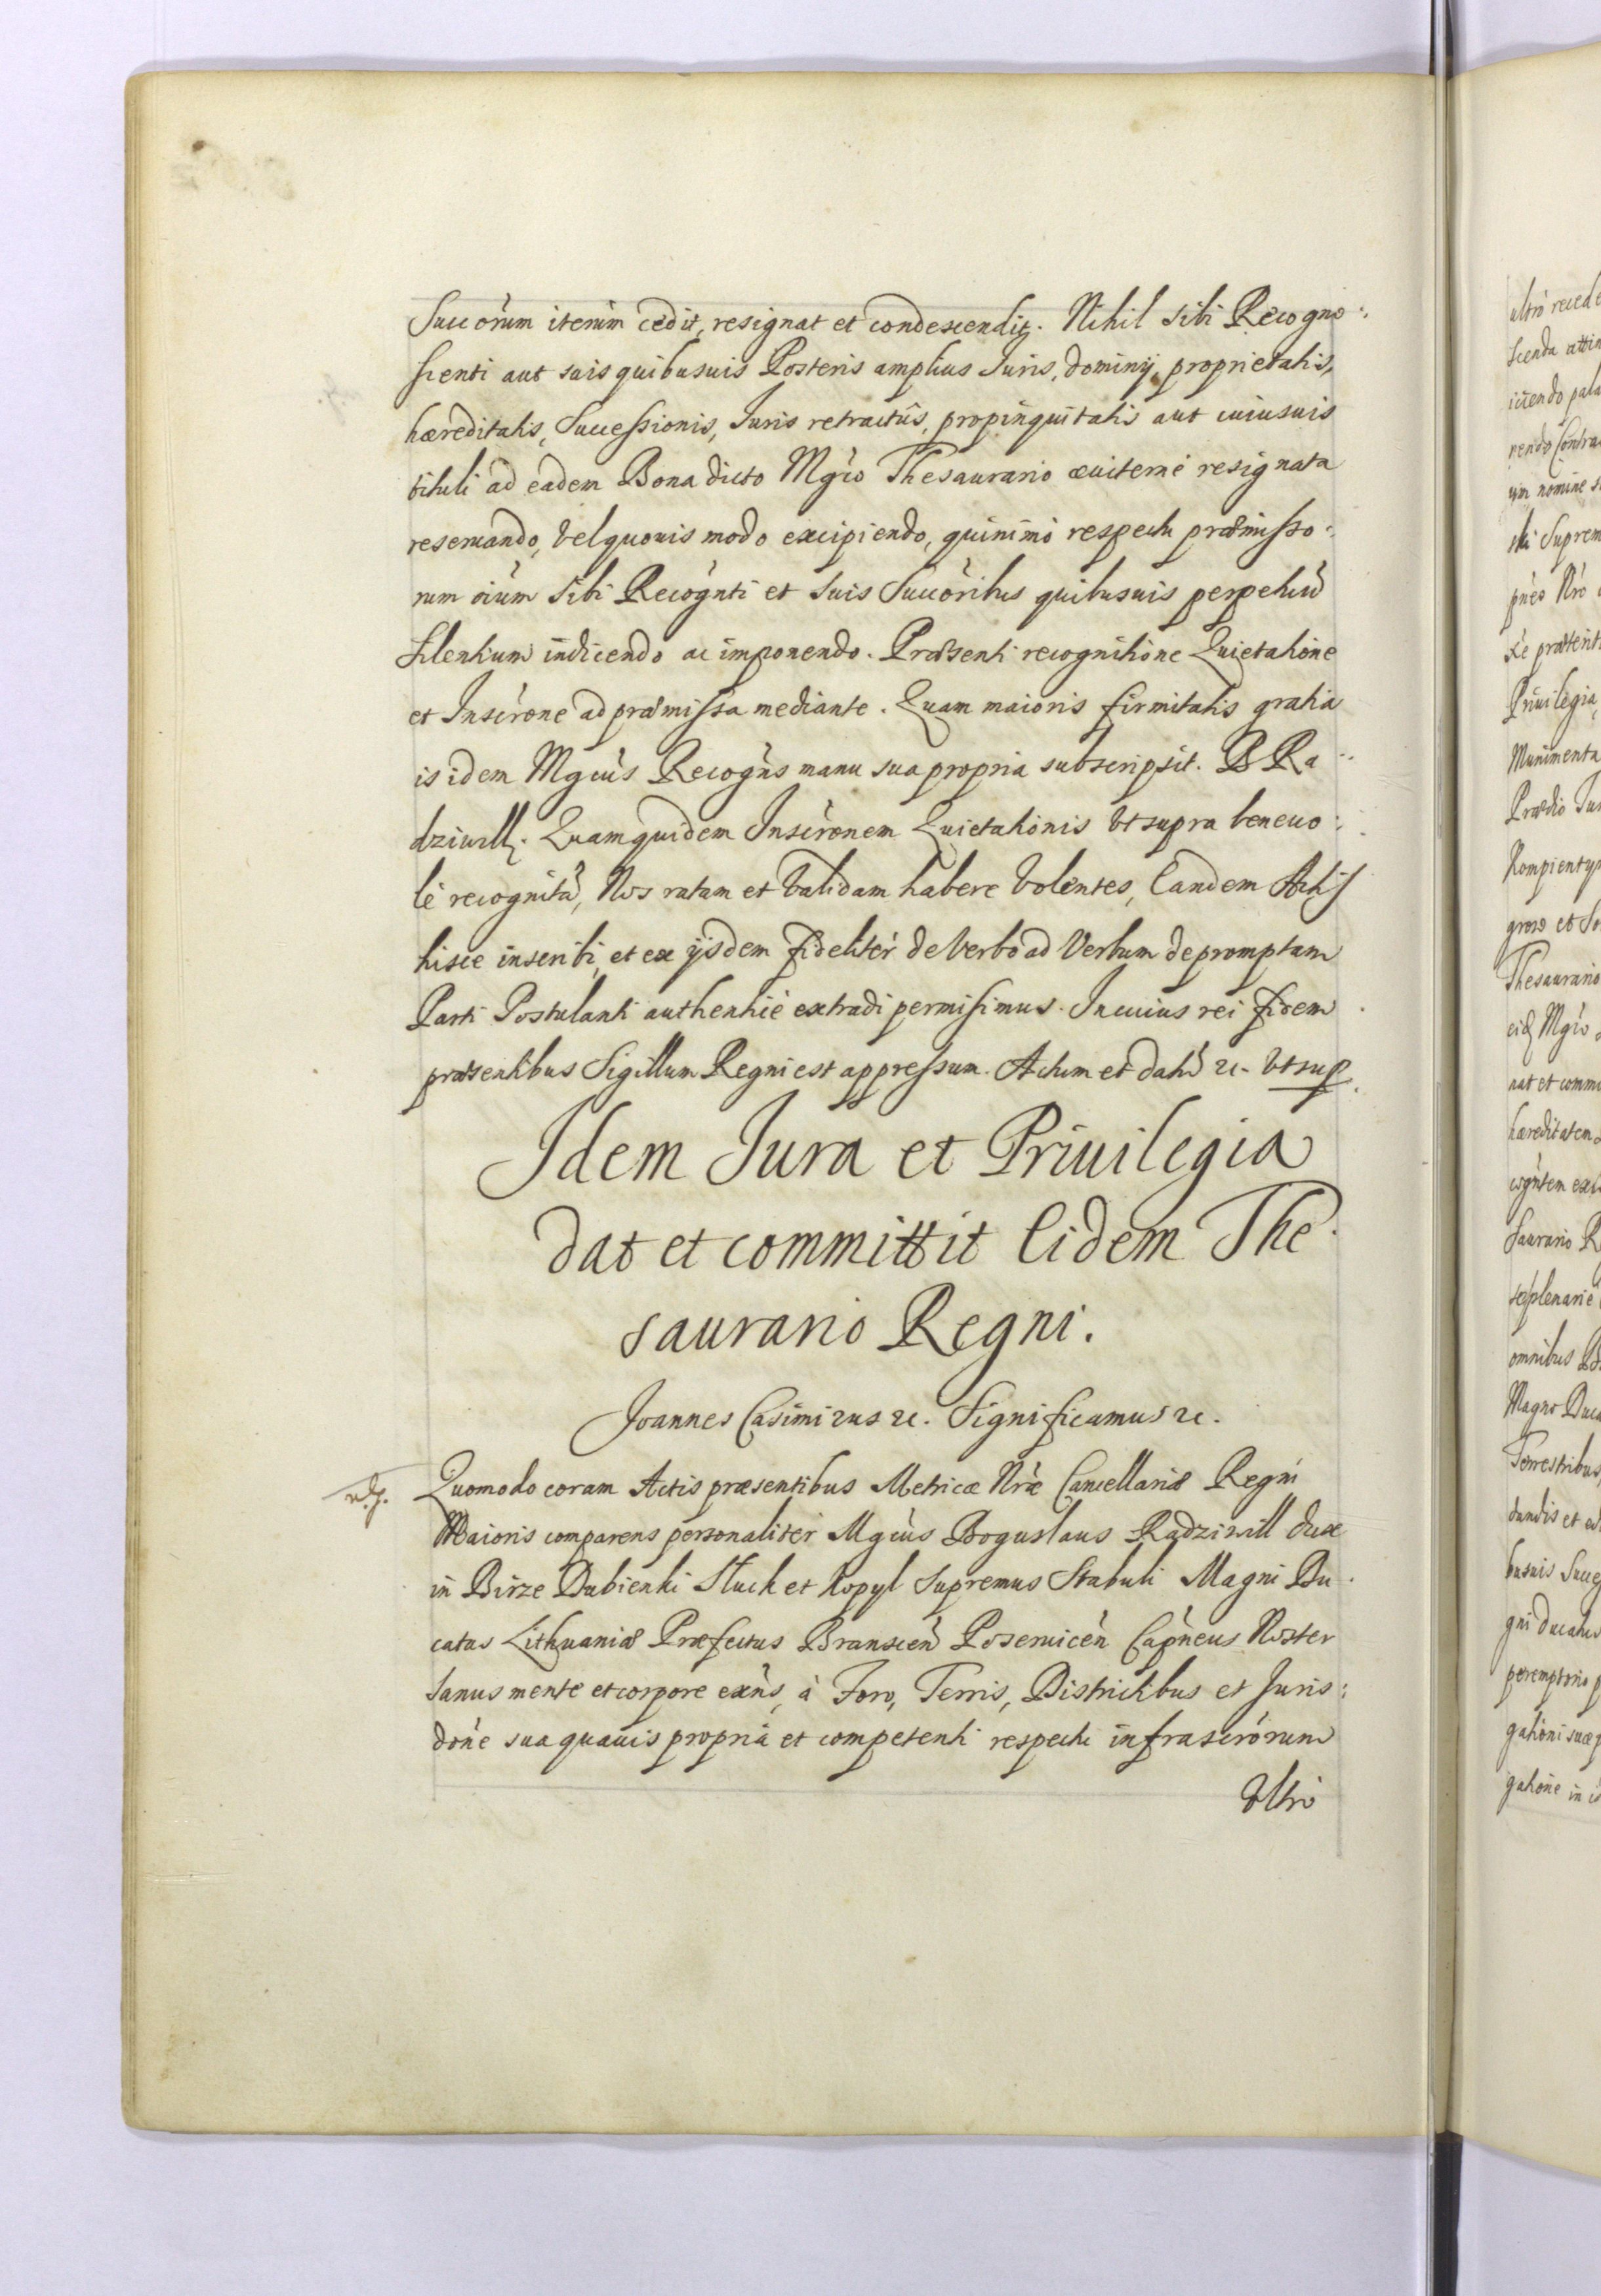 Succôrum iterùm cedit, resignat et condescendit. Nihil sibi Recogno:
scenti aut suis quibusuis Posteris amplius Juris, dominij, proprietatis,
hæreditatis, Successionis, Juris retractûs, propinquitatis aut cuiusuis
tituli ad eadem Bona dicto Mgco Thesaurario æuiternè resignata
reseruando, Vel quouis modo excipiendo, quinimò respectu præmisso:
rum oium sibi Recognti et suis Succoribus quibusuis perpetuũ
Silentium indicendo ac imponendo. Præsenti recognitione Quietatione
et Inscrone ad præmissa mediante. Quam maioris firmitatis gratia
is idem Mgcus Recogns manu sua propria subscripsit. B Ra:
dziwill. Quamquidem Inscronem Quietationis Vt supra beneuo:
lè recognitã, Nos ratam et Validam habere Volentes, Eandem Actis
hisce inscribi, et ex ijsdem fideliter de Verbo ad Verbum depromptam
Parti Postulanti authenticè extradi permisimus. In cuius rei fidem
præsentibus Sigillum Regni est appressum. Actum et datũ &c. Vt sup.
Idem Jura et Priuilegia
dat et committit Eidem The
saurario Regni.
Joannes Casimirus &c. Significamus &c.
Quomodo coram Actis præsentibus Metricæ Nræ Cancellariæ Regni
Maioris comparens personaliter Mgcus Boguslaus Radziwill dux
in Birze Dubienki Sluck et Kopyl Supremus Stabuli Magni Du
catus Lithuaniæ Præfectus Branscen Poseruicen Capneus Noster
Sanus mente et corpore exns, à Foro, Terris, Districtibus et Juris:
done sua quauis propria et competenti respectu infrascrorum
Vltrò
ultrò recede
scenda attin
icendo pala
nendo Contra
ym nomine s
ski Suprem
pnes Nro
sè prætent
Priuilegia,
Munimenta
Prædio Iur
Kompienty
grow et So
Thesaurario
eid Mgco
nat et commi
hæreditatem
cogntem ex
saurario R
seplenarie
omnibus B
Magno Duca
Terrestribus,
dandis et ed
busuis Succ
gni ducatus
peremptorio p
gationi suæ
gatione in i